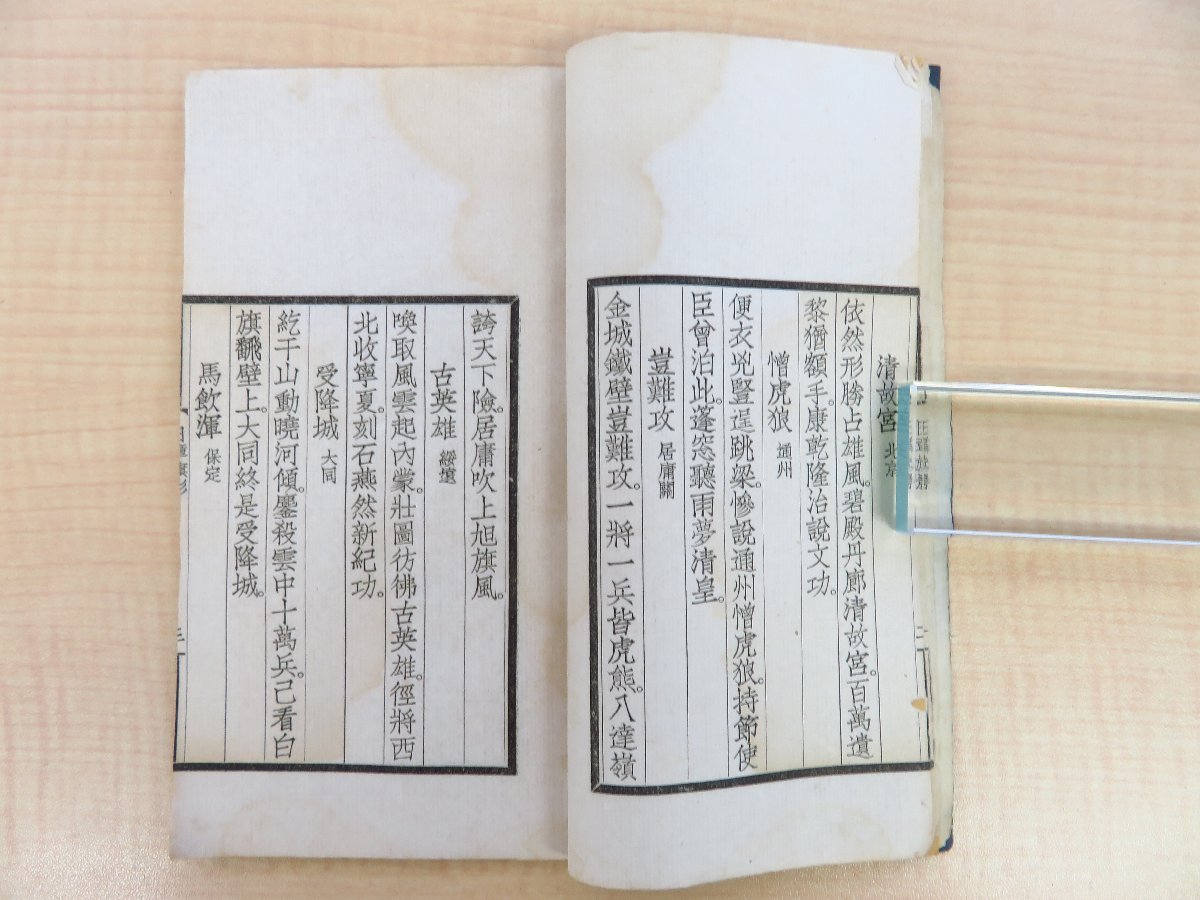 清故宮 北京
依然形勝占雄風。碧殿丹廊清故宮。百萬遺
黎猶額手。康乾隆治說文功。
憎虎狼 通州
便衣兇豎逞跳梁。慘說通州憎虎狼。持節使
臣曾泊此。蓬窓聽雨夢清皇。
豈難攻 居庸關
金城鐵壁豈難攻。一將一兵皆虎熊。八達嶺
誇天下險。居庸吹上旭旗風。
古英雄 綏遠
喚取風雲起內蒙。壯圖彷彿古英雄。徑將西
北收寧夏。刻石燕然新紀功。
受降城 大同
紇干山動曉河傾。鏖殺雲中十萬兵。已看白
旗飜壁上。大同終是受降城。
馬飲渾 保定